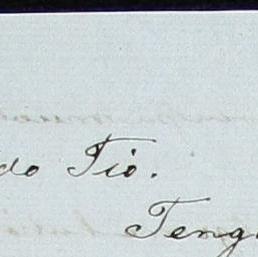 do Tio.
Teng